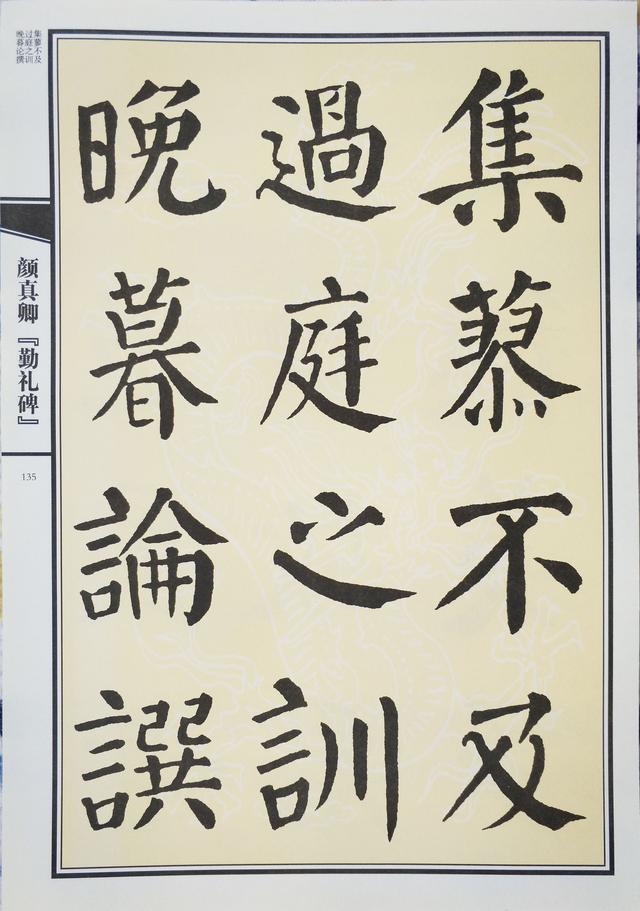 集蓼不及
過庭之訓
晚暮論譔
集蓼不及
过庭之训
晚暮论撰
颜真卿『勤礼碑』
135